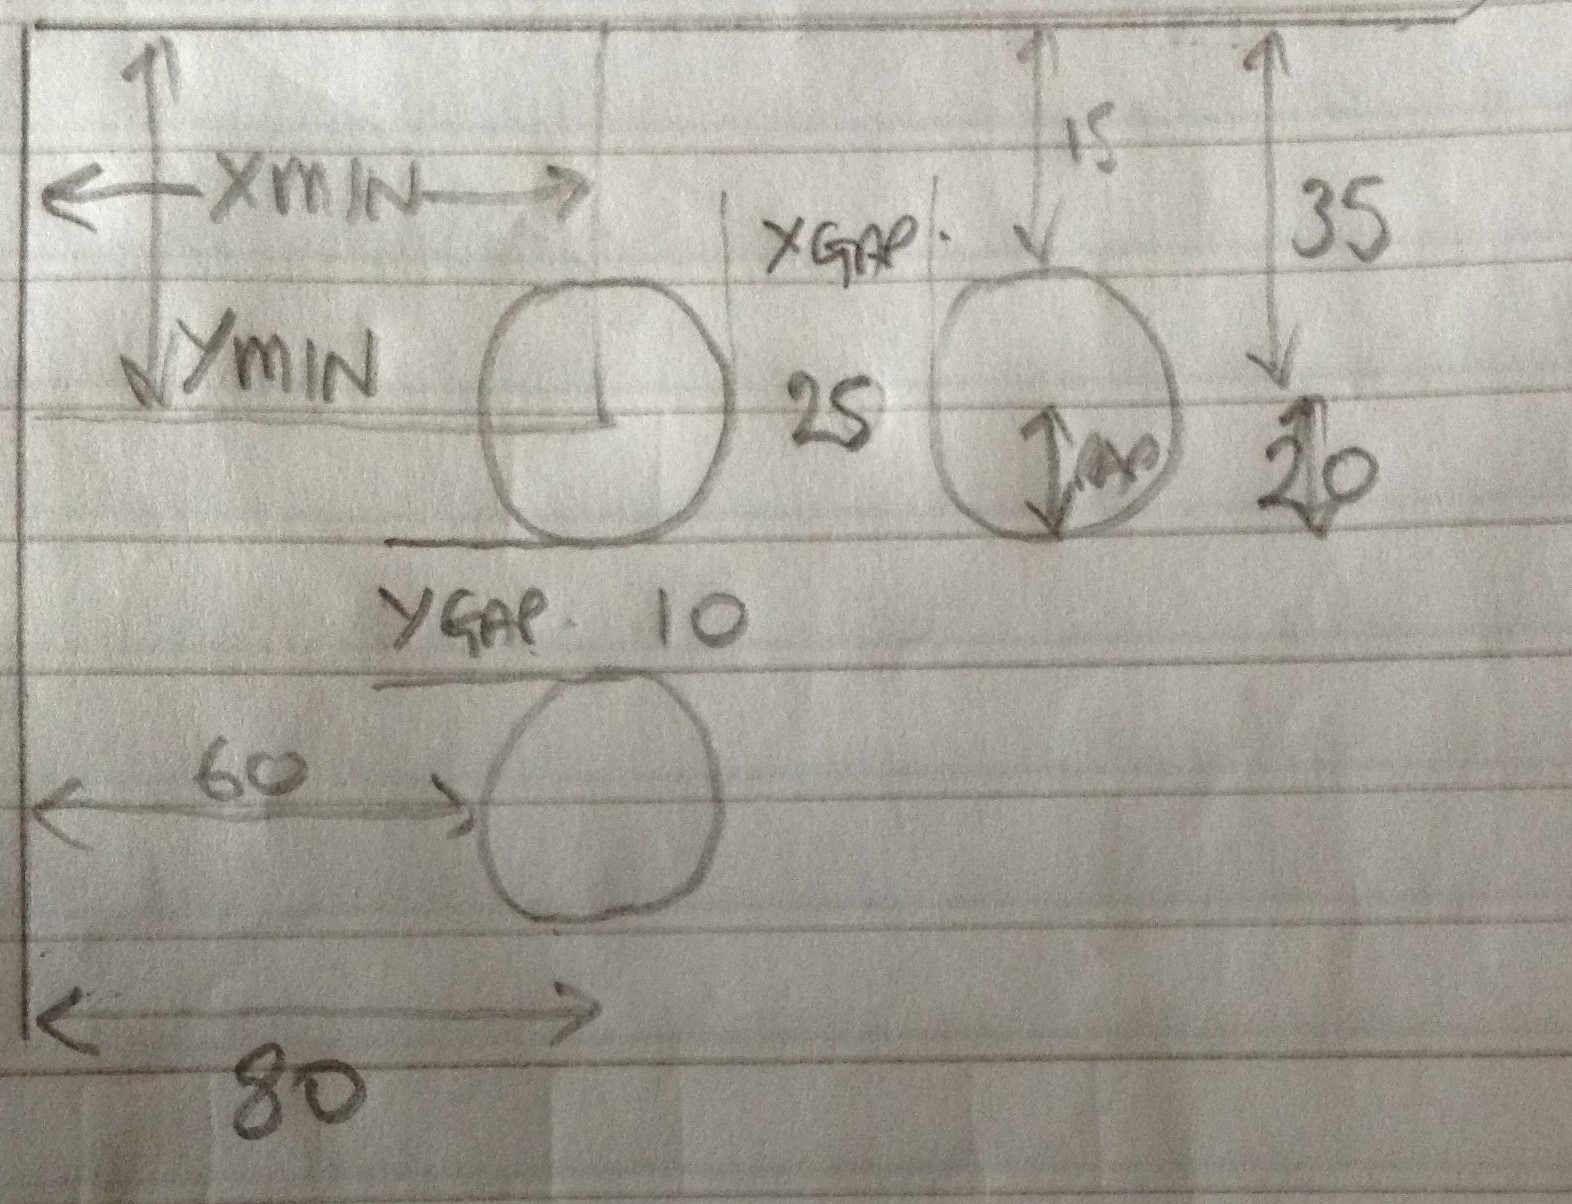 15
XMIN
35
XGAP.
YMIN
25
20
YGAP. 10
60
80